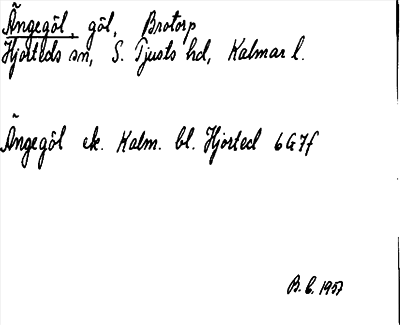 Ängegöl, göl, Brotorp
Hjorteds sn, S. Tjusts hd, Kalmar l.
Ängegöl ek. Kalm. bl. Hjorted 6G7f
B. L. 1957